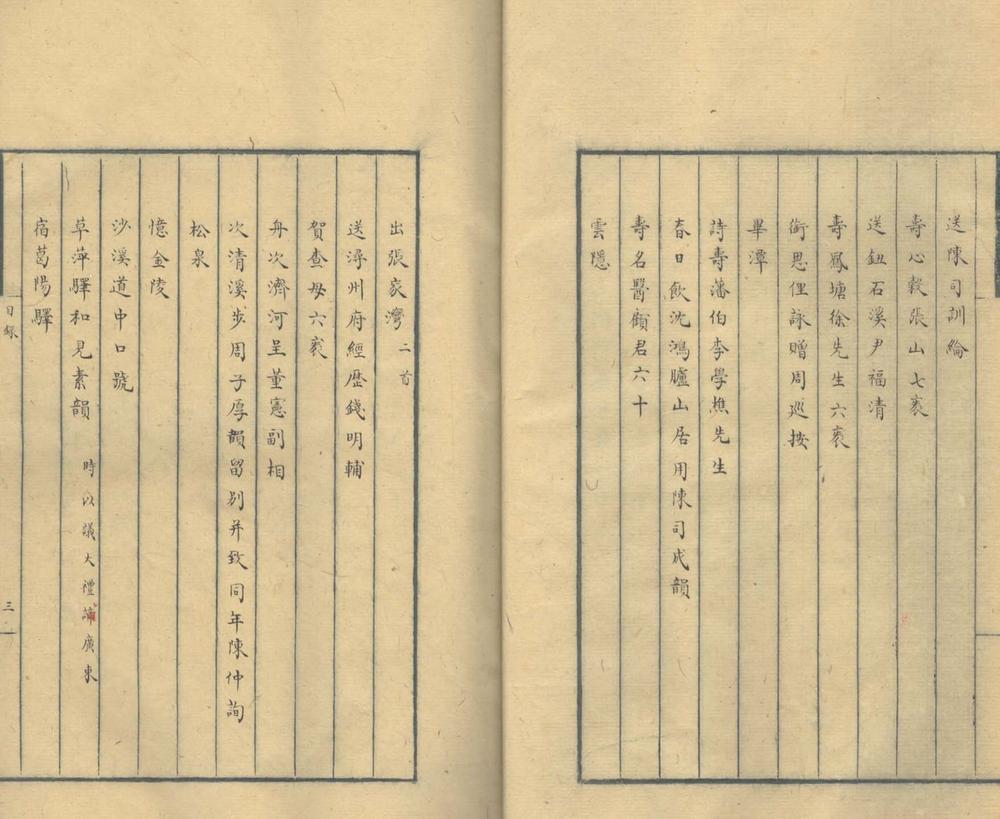 送陳司訓綸
壽心穀張山七袠
送鈕石溪尹福清
壽鳳塘徐先生六袠
銜思俚詠贈周巡按
畢潭
詩壽藩伯李學樵先生
春日飲沈鴻臚山居用陳司成韻
壽名醫顧君六十
雲隱
出張家灣二首
送潯州府經歷錢明輔
賀查母六袠
舟次濟河呈董憲副相
次清溪步周子厚韻留別并致同年陳仲詢
松泉
憶金陵
沙溪道中口號
草萍驛和見素韻時以議大禮謫廣東
宿葛陽驛
目錄
三